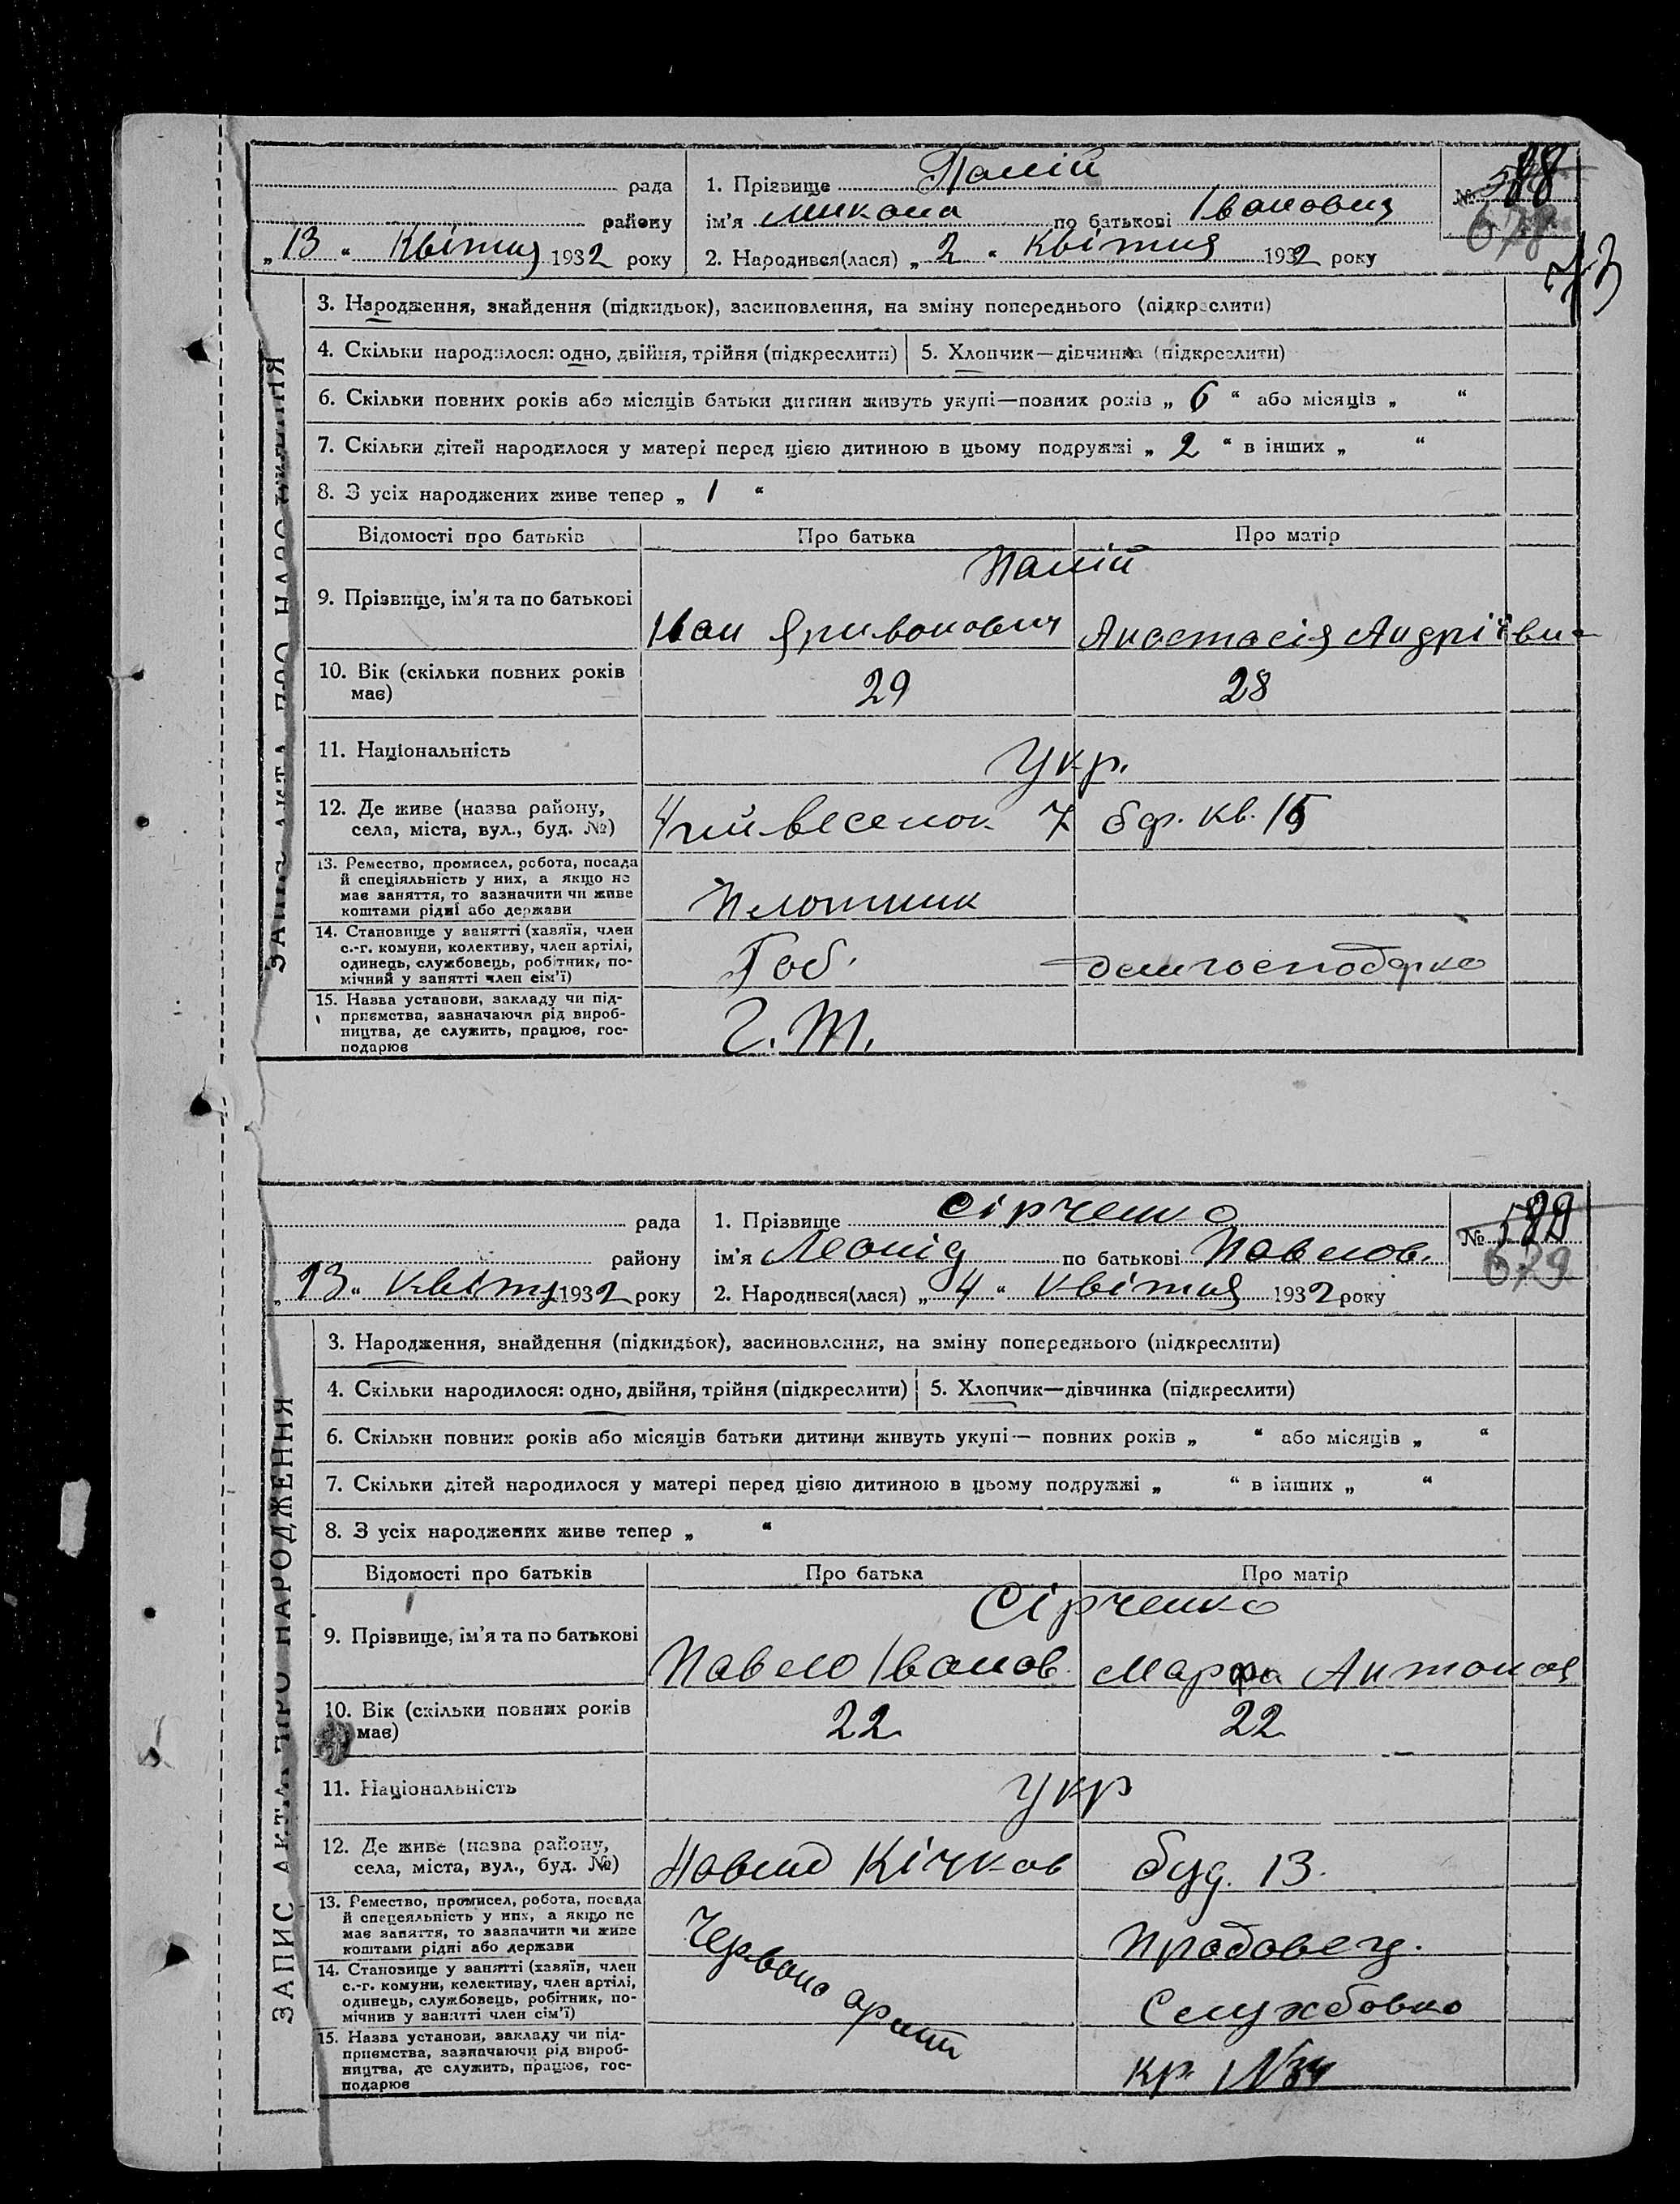 рада
району
„13“ Квітня 1932 року
1. Прізвище Палій
ім'я Микола по батькові Іванович
2. Народився(лася) „2“ Квітня 1932 року
№ 588
678
73
ЗАПИС АКТА ПРО НАРОДЖЕННЯ
3. Народження, знайдення (підкидьок), засиновлення, на зміну попереднього (підкреслити)
4. Скільки народилося: одно, двійня, трійня (підкреслити)
5. Хлопчик—дівчинка (підкреслити)
6. Скільки повних років або місяців батьки дитини живуть укупі—повних років „6“ або місяців „ “
7. Скільки дітей народилося у матері перед цією дитиною в цьому подружжі „2“ в інших „ “
8. З усіх народжених живе тепер „1“
Відомості про батьків Про батька Про матір
Палій
9. Прізвище, ім'я та по батькові Іван Анастасія Андріївна
10. Вік (скільки повних років має) 29 28
11. Національність Укр.
12. Де живе (назва району, села, міста, вул., буд. №) 7 кв. 15
13. Ремество, промисел, робота, посада й спеціяльність у них, а якщо не має заняття, то зазначити чи живе коштами рідні або держави Плотник
14. Становище у занятті (хазяїн, член с.-г. комуни, колективу, член артілі, одинець, службовець, робітник, помічний у занятті член сім'ї) Роб. домгосподарка
15. Назва установи, закладу чи підприємства, зазначаючи рід виробництва, де служить, працює, господарює
рада
району
„13“ Квітня 1932 року
1. Прізвище Сірченко
ім'я Леонід по батькові Павлов.
2. Народився(лася) „4“ Квітня 1932 року
№ 589
679
ЗАПИС АКТА ПРО НАРОДЖЕННЯ
3. Народження, знайдення (підкидьок), засиновлення, на зміну попереднього (підкреслити)
4. Скільки народилося: одно, двійня, трійня (підкреслити)
5. Хлопчик—дівчинка (підкреслити)
6. Скільки повних років або місяців батьки дитини живуть укупі— повних років „ “ або місяців „ “
7. Скільки дітей народилося у матері перед цією дитиною в цьому подружжі „ “ в інших „ “
8. З усіх народжених живе тепер „ “
Відомості про батьків Про батька Про матір
Сірченко
9. Прізвище, ім'я та по батькові Павло Іванов. Антонов
10. Вік (скільки повних років має) 22 22
11. Національність Укр
12. Де живе (назва району, села, міста, вул., буд. №) Кічкас буд. 13.
13. Ремество, промисел, робота, посада й спецеяльність у них, а якщо не має заняття, то зазначити чи живе коштами рідні або держави Червоно арміі Продавец.
14. Становище у занятті (хазяїн, член с.-г. комуни, колективу, член артілі, одинець, службовець, робітник, помічнив у занятті член сім'ї) Службовка
15. Назва установи, закладу чи підприємства, зазначаючи рід виробництва, де служить, працює, господарює кр. №34